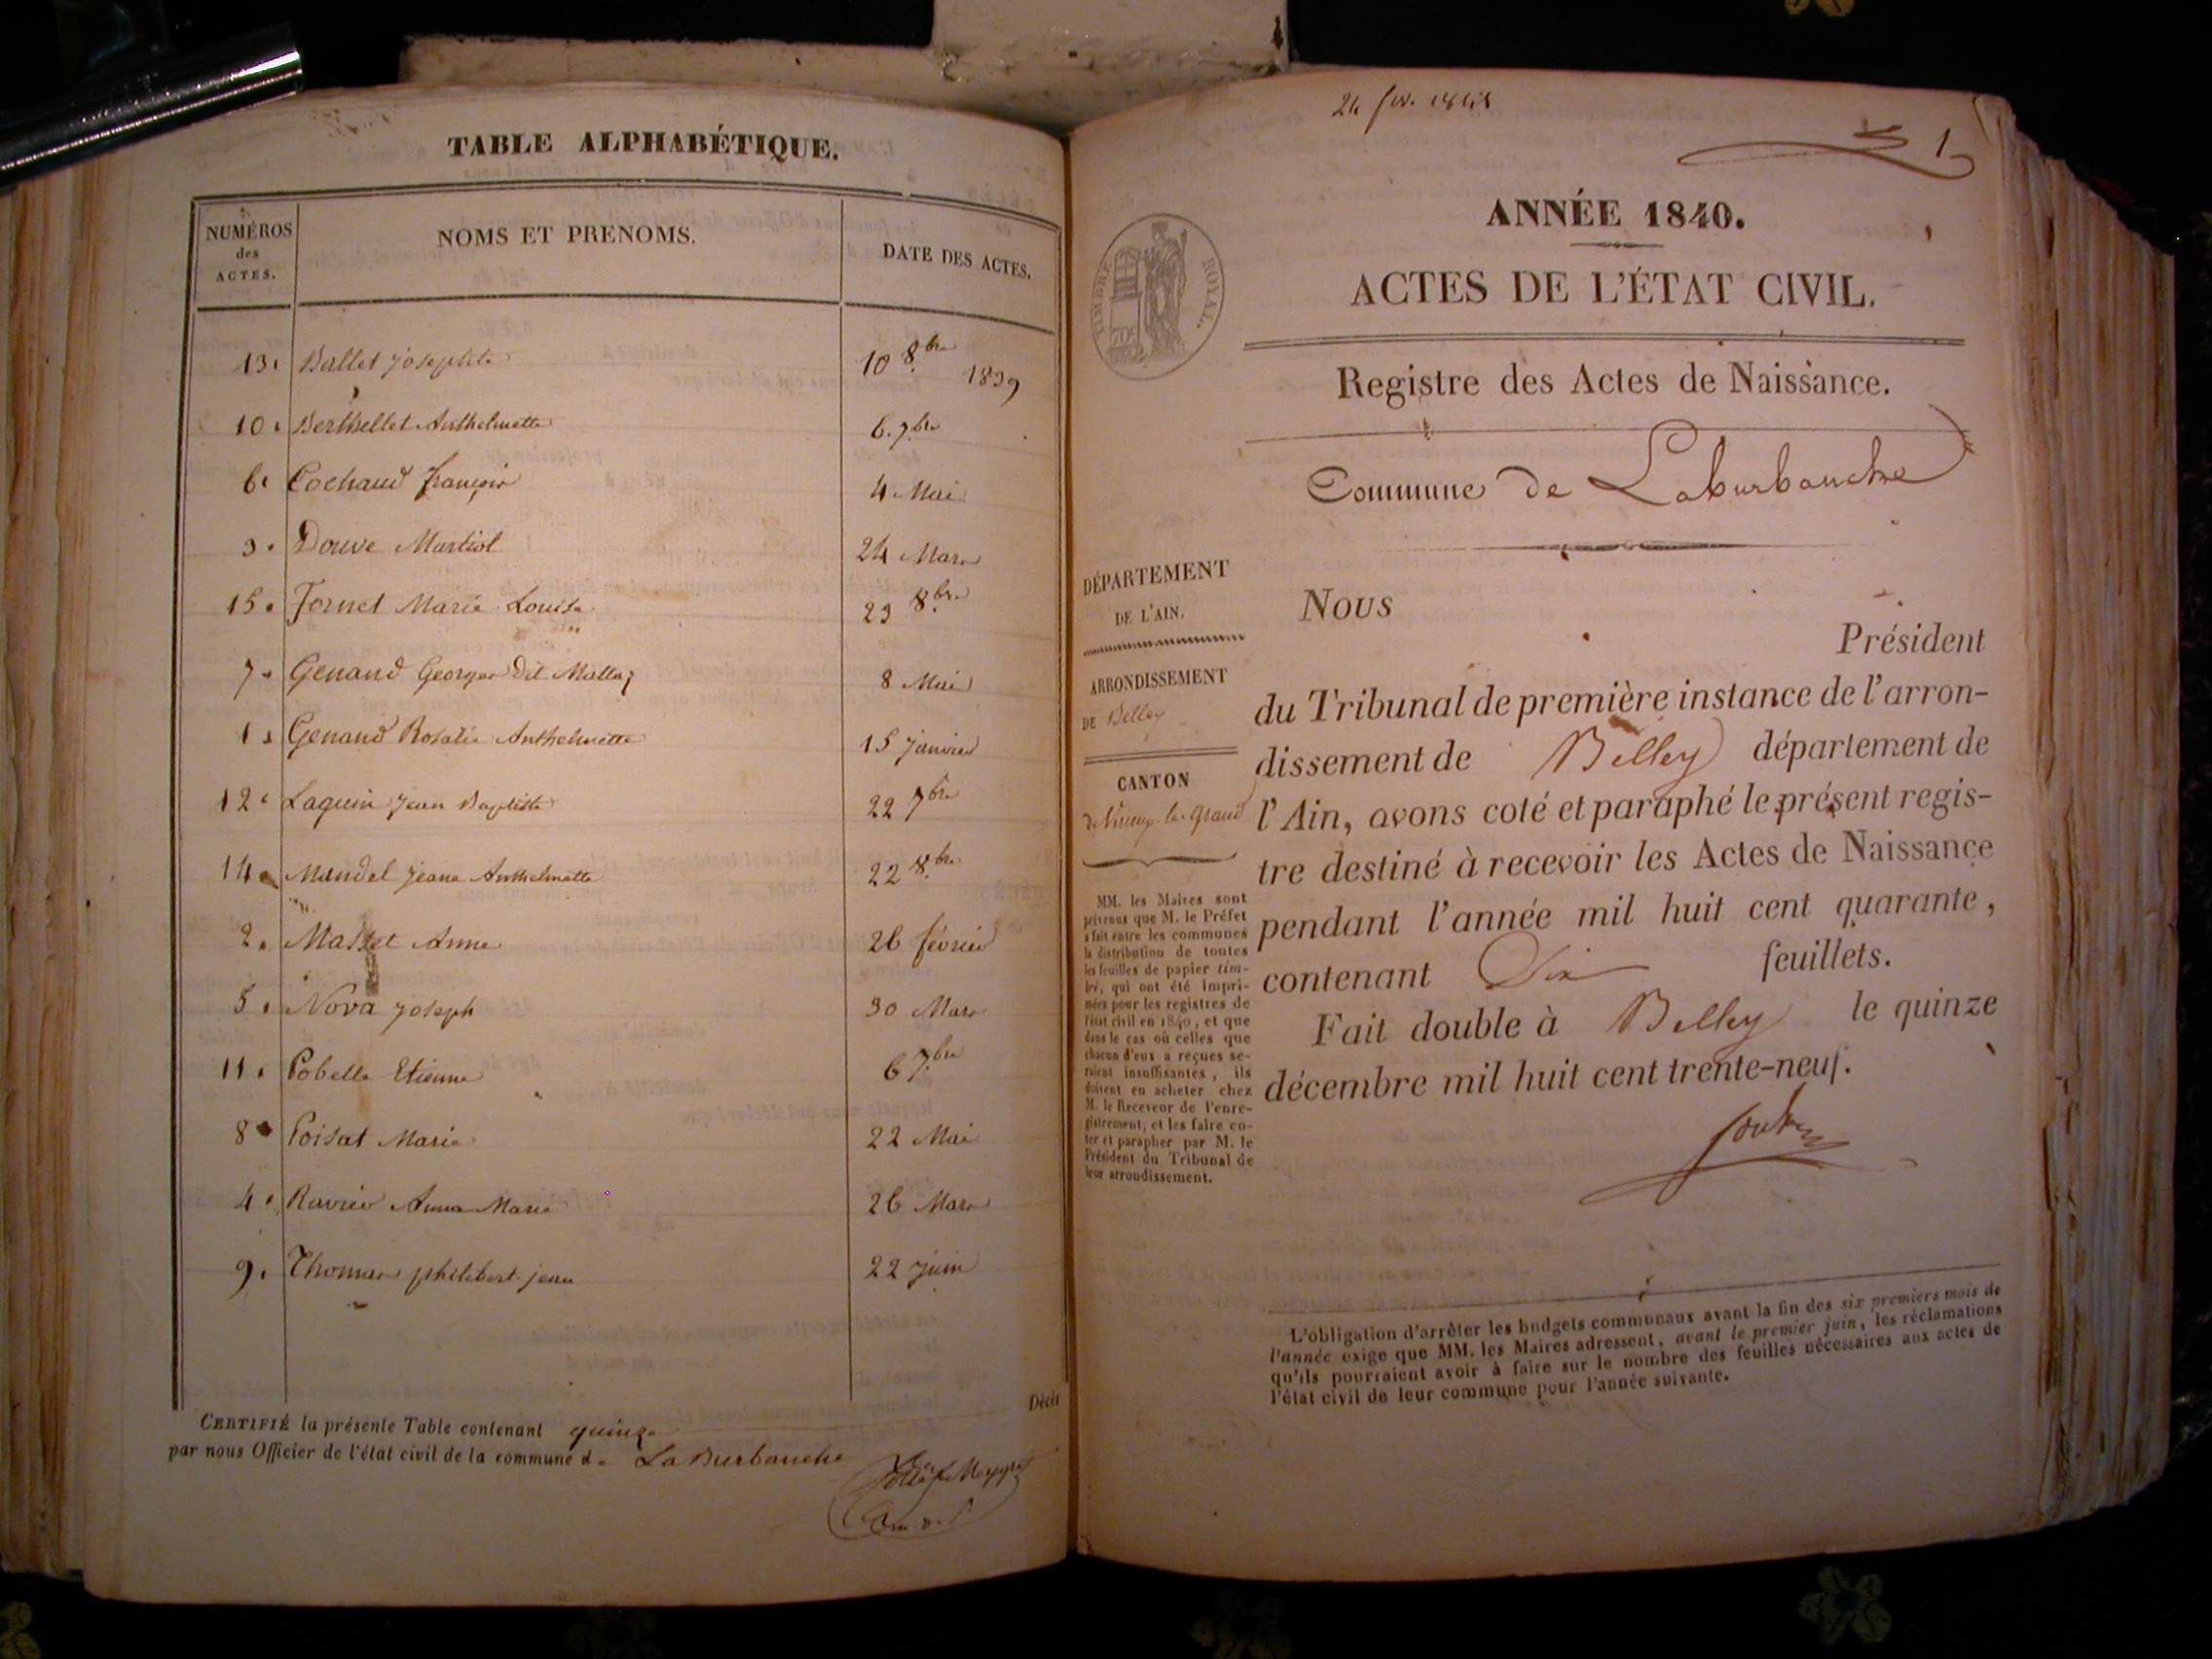 TABLE ALPHABÉTIQUE.
NUMÉROS des ACTES. NOMS ET PRENOMS. DATE DES ACTES.
13. Ballet josephte 10 8.bre 1839
10. Berthellet Anthelmette 6. 7bre
6. Cochaud françois 4 Mai
3. Douve Martial 24 Mars
15. Fornet Marie Louise 23 8.bre
7. Genand Georges Dit Mallaz 8 Mai
1. Genand Rosalie Anthelmette 15 janvier
12. Laguin jean Baptiste 22 7bre
14. Mandel jeane Anthelmette 22 8.bre
2. Masset Anne 26 février
5. Nova joseph 30 Mars
11. Pobelle Etienne 6 7.bre
8. Poisat Marie 22 Mai
4. Ravier Anna Marie 26 Mars
9. Thomas philibert jean 22 juin
Décès
CERTIFIÉ la présente Table contenant quinze
par nous Officier de l'état civil de la commune de La Burbanche
1
TIMBRE ROYAL.
70c
ANNÉE 1840.
ACTES DE L'ÉTAT CIVIL.
Registre des Actes de Naissance.
Commune de Laburbanche
DÉPARTEMENT
DE L'AIN.
ARRONDISSEMENT
DE Belley
CANTON
de Virieux-le-Grand
MM. les Maires sont
prévenus que M. le Préfet
a fait entre les communes
la distribution de toutes
les feuilles de papier tim-
bré, qui ont été impri-
mées pour les registres de
l'état civil en 1840, et que
dans le cas où celles que
chacun d'eux a reçues se-
raient insuffisantes, ils
doivent en acheter chez
M. le Receveur de l'enre-
gistrement; et les faire co-
ter et parapher par M. le
Président du Tribunal de
leur arrondissement.
Nous
Président
du Tribunal de première instance de l'arron-
dissement de Belley département de
l'Ain, avons coté et paraphé le présent regis-
tre destiné à recevoir les Actes de Naissance
pendant l'année mil huit cent quarante,
contenant Dix feuillets.
Fait double à Belley le quinze
décembre mil huit cent trente-neuf.
L'obligation d'arrêter les budgets communaux avant la fin des six premiers mois de
l'année exige que MM. les Maires adressent, avant le premier juin, les réclamations
qu'ils pourraient avoir à faire sur le nombre des feuilles nécessaires aux actes de
l'état civil de leur commune pour l'année suivante.